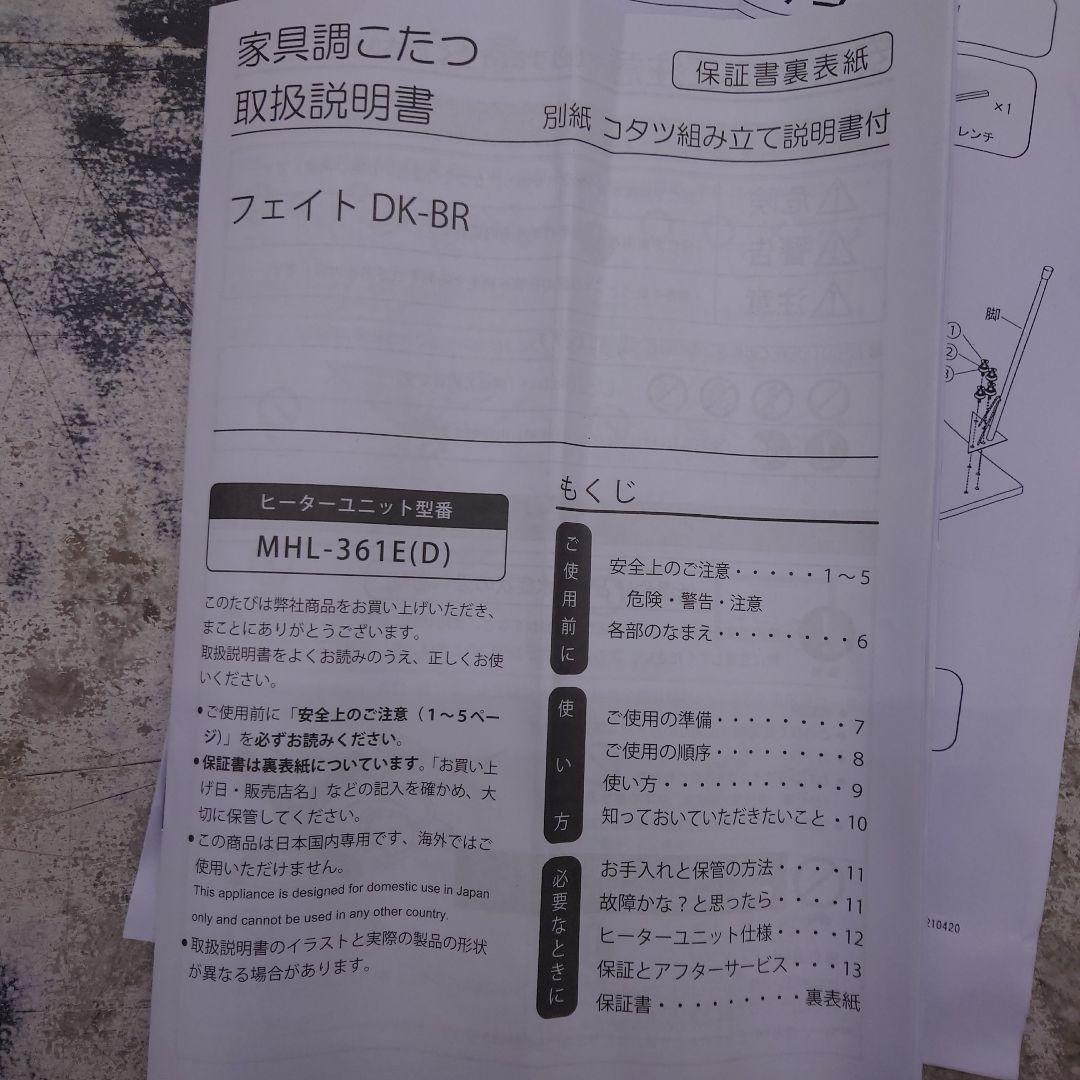 家具調こたつ
取扱説明書
保証書裏表紙
別紙 コタツ組み立て説明書付
フェイト DK-BR
ヒーターユニット型番
MHL-361E(D)
このたびは弊社商品をお買い上げいただき、
まことにありがとうございます。
取扱説明書をよくお読みのうえ、正しくお使
いください。
•ご使用前に「安全上のご注意（1〜5ペー
ジ）」を必ずお読みください。
•保証書は裏表紙についています。「お買い上
げ日・販売店名」などの記入を確かめ、大
切に保管してください。
•この商品は日本国内専用です、海外ではご
使用いただけません。
This appliance is designed for domestic use in Japan
only and cannot be used in any other country.
•取扱説明書のイラストと実際の製品の形状
が異なる場合があります。
もくじ
ご使用前に
安全上のご注意・・・・・1〜5
危険・警告・注意
各部のなまえ・・・・・・・・6
使い方
ご使用の準備・・・・・・・・7
ご使用の順序・・・・・・・・8
使い方・・・・・・・・・・・9
知っておいていただきたいこと・10
必要なときに
お手入れと保管の方法・・・・11
故障かな？と思ったら・・・・11
ヒーターユニット仕様・・・・12
保証とアフターサービス・・・13
保証書・・・・・・・・・裏表紙
×1
レンチ
脚
①
②
③
210420